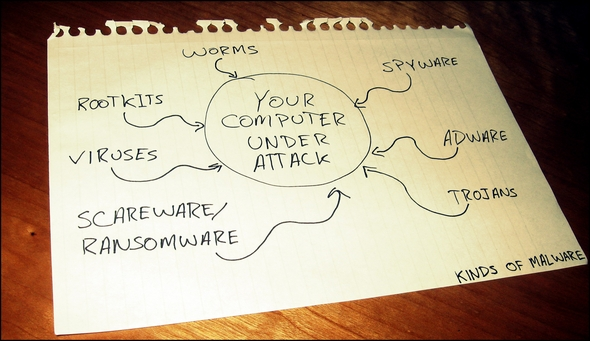 WORMS
SPYWARE
ROOTKITS
YOUR
COMPUTER
UNDER
ATTACK
ADWARE
VIRUSES
TROJANS
SCAREWARE/
RANSOMWARE
KINDS OF MALWARE